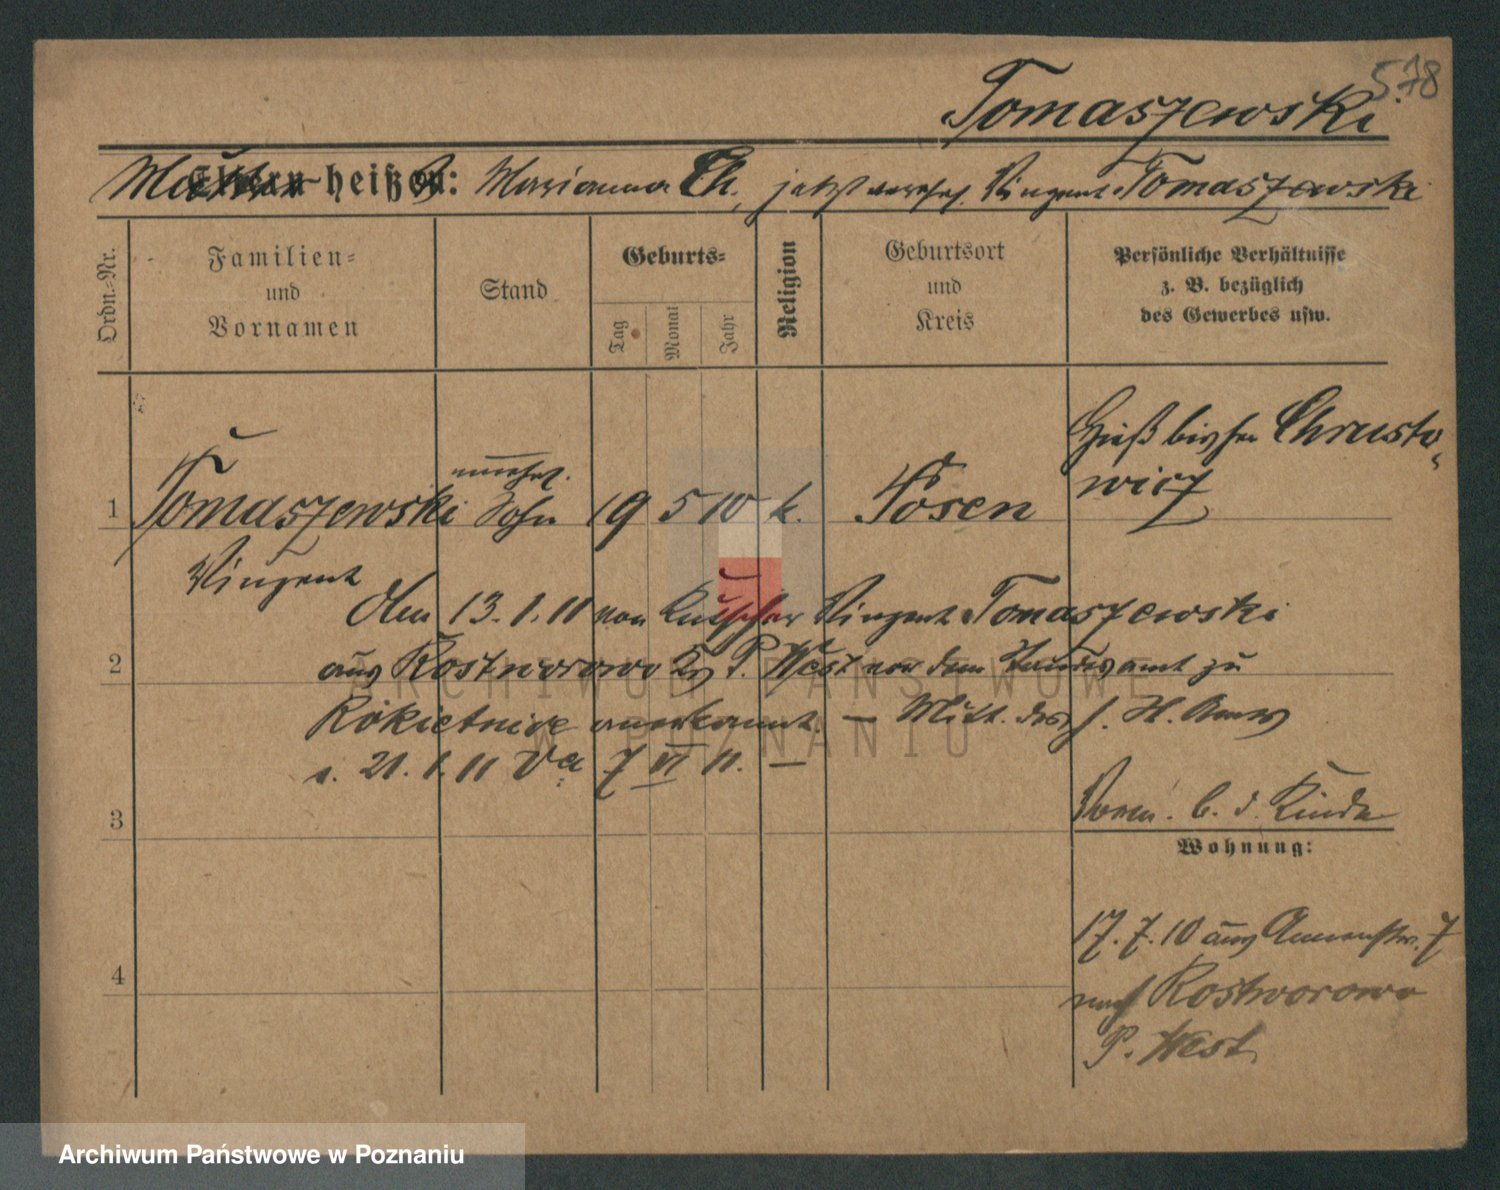 578
Tomaszewski
Mutter heißt: Marianna Ch., jetzt verehel. Vinzent Tomaszewski
Ordn.-Nr.
Familien-
und
Vornamen
Stand
Geburts-
Tag
Monat
Jahr
Religion
Geburtsort
und
Kreis
Persönliche Verhältnisse
z. B. bezüglich
des Gewerbes usw.
Hieß bisher Chrusto-
wicz
unehel.
1 Tomaszewski Sohn 19 5 10 k. Posen
Vinzent
Am 13.1.11 von Kutscher Vinzent Tomaszewski
2
aus Rostworowo Krs P. West vor dem Standesamt zu
Rokietnice anerkannt. — Mitt. des St. A.
v. 21.1.11 7 VI 11. —
3
Vorm. b. d. Kinde
Wohnung:
17.7.10 aus Annenstr. 7
nach Rostworowo
P. West
4
ARCHIWUM PAŃSTWOWE
W POZNANIU
Archiwum Państwowe w Poznaniu